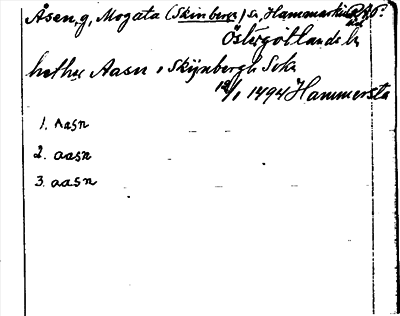 Åsen, g, Mogata (Skinberga) sn, Hammarkinds
Östergötlands l.
hethe Aasn i Skijnbergh Sokn
12/1 1494 Hammersta
1. Aasn
2. aasn
3. aasn